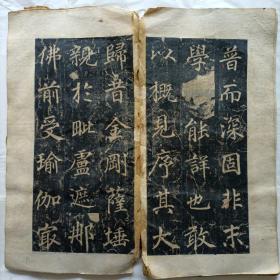 普而深固非末
學能詳也敢
以概見序其大
歸昔金剛薩埵
親於毗盧遮那
佛前受瑜伽最